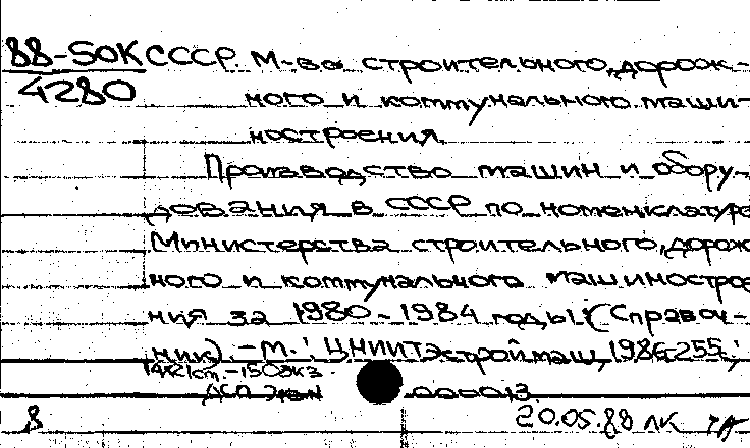 88-50К СССР. М-во строительного, дорож-
4280 ного и коммунального маши-
ностроения.
Производство машин и обору-
дования в СССР по номенклатуре
Министерства строительного, дорож
ного и коммунального машинострое
ния за 1980-1984 годы: (Справоч-
ник). - М.: ЦНИИТЭстроймаш, 1986-255;
14х21см. - 150экз.
ДСП Экз.N 000013.
8 20.05.88 ЛК